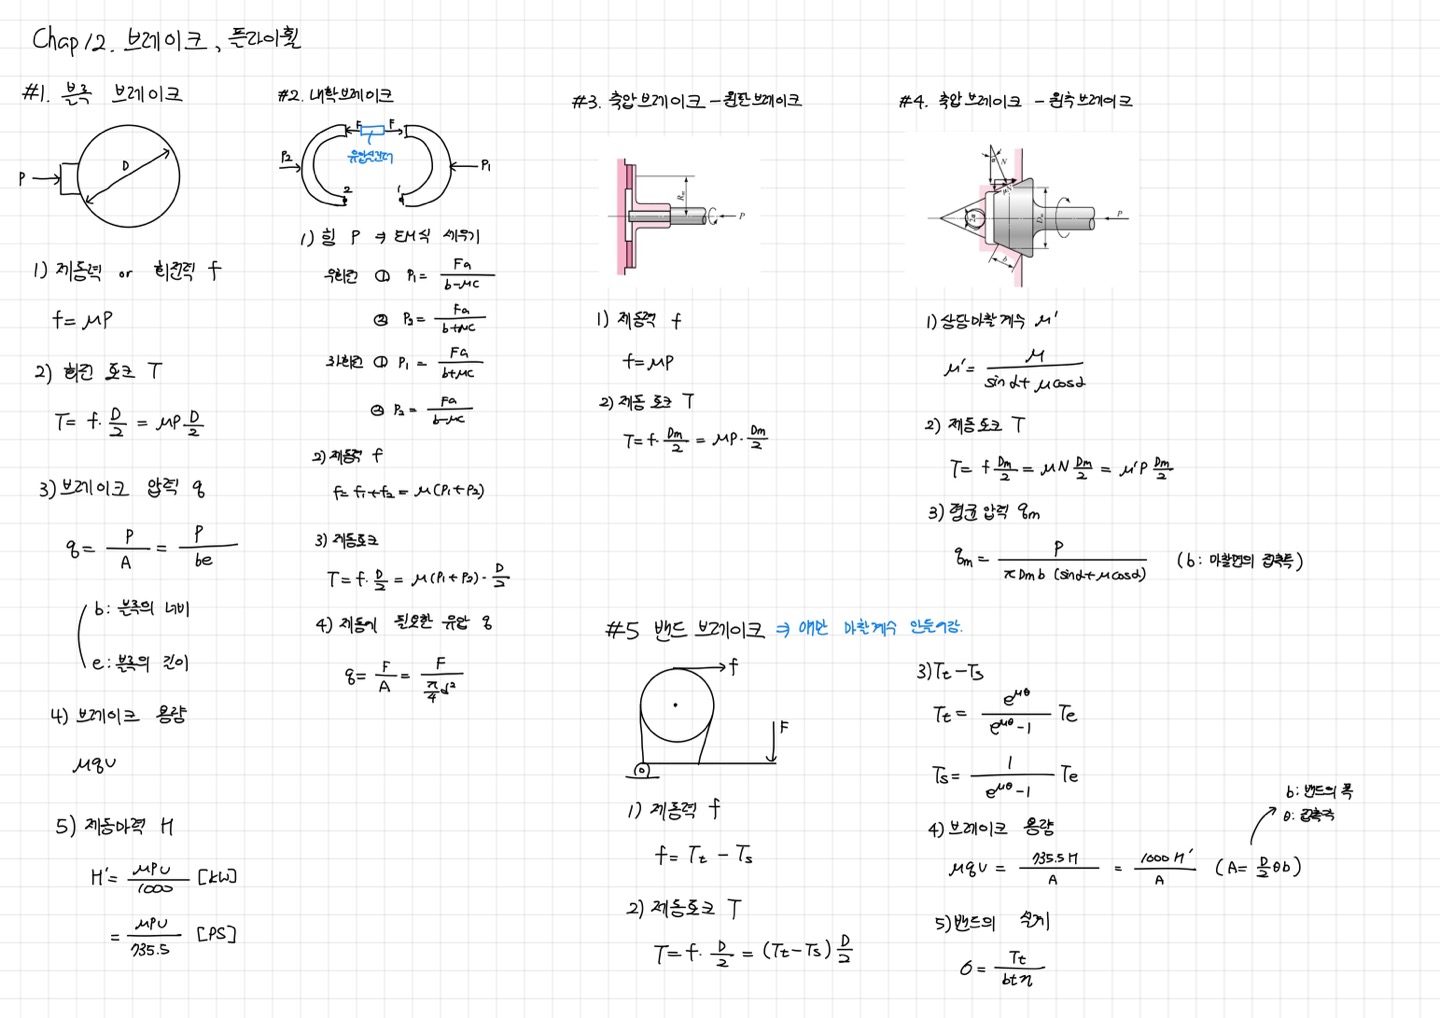 Chap 12. 브레이크, 플라이휠
#1. 블록 브레이크
P
D
1) 제동력 or 회전력 f
f = μP
2) 회전 토크 T
T = f · D/2 = μP D/2
3) 브레이크 압력 q
q = P/A = P/be
b: 블록의 너비
e: 블록의 길이
4) 브레이크 용량
μqv
5) 제동마력 H
H' = μPv/1000 [kW]
= μPv/735.5 [PS]
#2. 내확브레이크
F F
유압실린더
P2
P1
2 1
1) 힘 P ⇒ ΣM식 세우기
우회전 ① P1 = Fa/(b-μc)
② P2 = Fa/(b+μc)
좌회전 ① P1 = Fa/(b+μc)
② P2 = Fa/(b-μc)
2) 제동력 f
f = f1+f2 = μ(P1+P2)
3) 제동토크
T = f · D/2 = μ(P1+P2) · D/2
4) 제동에 필요한 유압 q
q = F/A = F/(π/4 d²)
#3. 축압브레이크 - 원판브레이크
P
1) 제동력 f
f = μP
2) 제동 토크 T
T = f · Dm/2 = μP · Dm/2
#4. 축압 브레이크 - 원추브레이크
N
P
b
1) 상당마찰계수 μ'
μ' = μ/(sin α + μcosα)
2) 제동토크 T
T = f Dm/2 = μN Dm/2 = μ'P Dm/2
3) 평균압력 qm
qm = P/(πDmb (sinα+μcosα)) (b: 마찰면의 접촉폭)
#5 밴드 브레이크 ⇒ 얘만 마찰계수 안들어감.
f
F
1) 제동력 f
f = Tt - Ts
2) 제동토크 T
T = f · D/2 = (Tt-Ts) D/2
3) Tt - Ts
Tt = e^μθ/(e^μθ-1) Te
Ts = 1/(e^μθ-1) Te
b: 밴드의 폭
θ: 접촉각
4) 브레이크 용량
μqv = 735.5H/A = 1000H'/A (A = D/2 θb)
5) 밴드의 설계
σ = Tt/btη